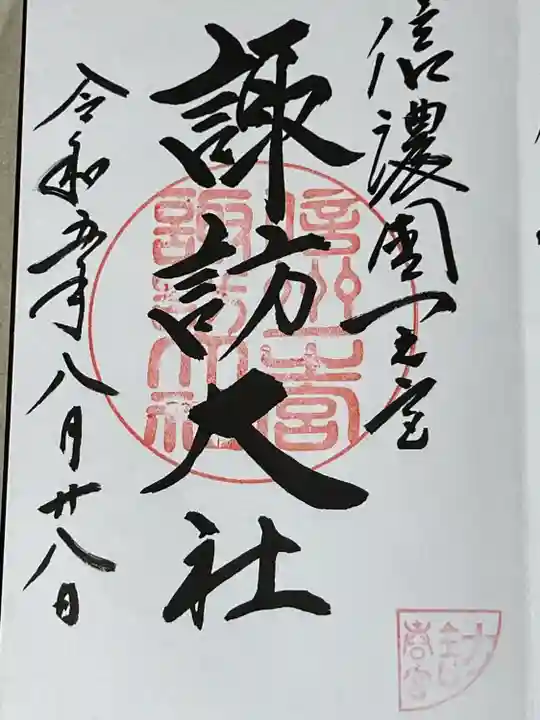 信濃國一之宮
諏訪大社
令和五年八月廿八日
信州一宮
諏訪大社
春宮